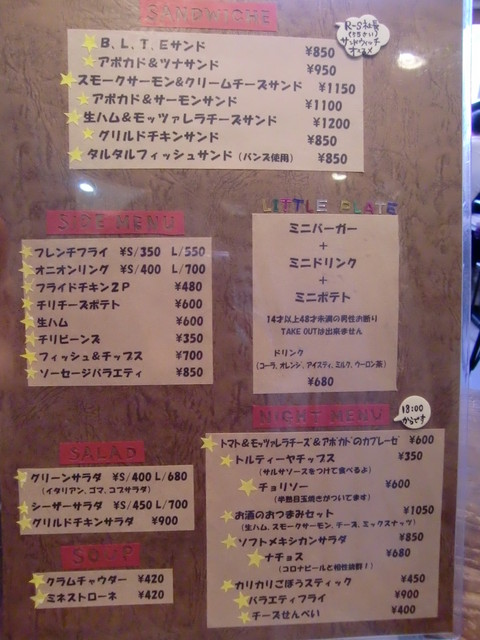 SANDWICHE
R-S社長
(うちさい)
サンドウィッチ
オススメ
B、L、T、Eサンド ¥850
アボカド&ツナサンド ¥950
スモークサーモン&クリームチーズサンド ¥1150
アボカド&サーモンサンド ¥1100
生ハム&モッツァレラチーズサンド ¥1200
グリルドチキンサンド ¥850
タルタルフィッシュサンド (バンズ使用) ¥850
SIDE MENU
フレンチフライ ¥S/350 L/550
オニオンリング ¥S/400 L/700
フライドチキン2P ¥480
チリチーズポテト ¥600
生ハム ¥600
チリビーンズ ¥350
フィッシュ&チップス ¥700
ソーセージバラエティ ¥850
LITTLE PLATE
ミニバーガー
+
ミニドリンク
+
ミニポテト
14才以上48才未満の男性お断り
TAKE OUTは出来ません
ドリンク
(コーラ、オレンジ、アイスティ、ミルク、ウーロン茶)
¥680
SALAD
グリーンサラダ ¥S/400 L/680
(イタリアン、ゴマ、コブサラダ)
シーザーサラダ ¥S/450 L/700
グリルドチキンサラダ ¥900
SOUP
クラムチャウダー ¥420
ミネストローネ ¥420
NIGHT MENU
18:00
からです
トマト&モッツァレラチーズ&アボカドのカプレーゼ ¥600
トルティーヤチップス ¥350
(サルサソースをつけて食べるよ)
チョリソー ¥600
(半熟目玉焼きがついてます)
お酒のおつまみセット ¥1050
(生ハム、スモークサーモン、チーズ、ミックスナッツ)
ソフトメキシカンサラダ ¥850
ナチョス ¥680
(コロナビールと相性抜群!)
カリカリごぼうスティック ¥450
バラエティフライ ¥900
チーズせんべい ¥400